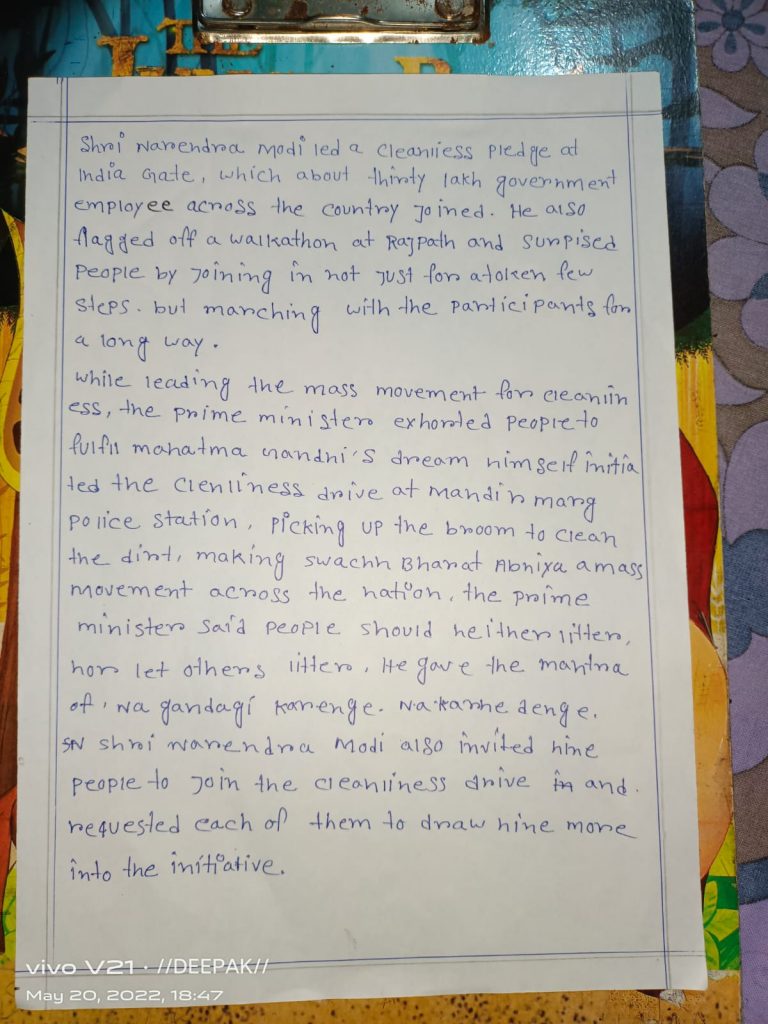 THE
Shri Narendra Modi led a cleanliess pledge at
India Gate, which about thirty lakh government
employee across the country joined. He also
flagged off a walkathon at Rajpath and surpised
people by joining in not just for a token few
steps. but marching with the participants for
a long way.
while leading the mass movement for cleanlin
ess, the prime minister exhorted people to
fulfil mahatma Gandhi's dream himself initia
ted the clenliness drive at mandir marg
police station, picking up the broom to clean
the dirt, making swachh Bharat Abhiya a mass
movement across the nation, the prime
minister said people should neither litter,
nor let others litter, He gave the mantra
of, Na gandagi karenge. Na karne denge.
shri Narendra Modi also invited nine
people to join the cleanliness drive and.
requested each of them to draw nine more
into the initiative.
vivo V21 · //DEEPAK//
May 20, 2022, 18:47